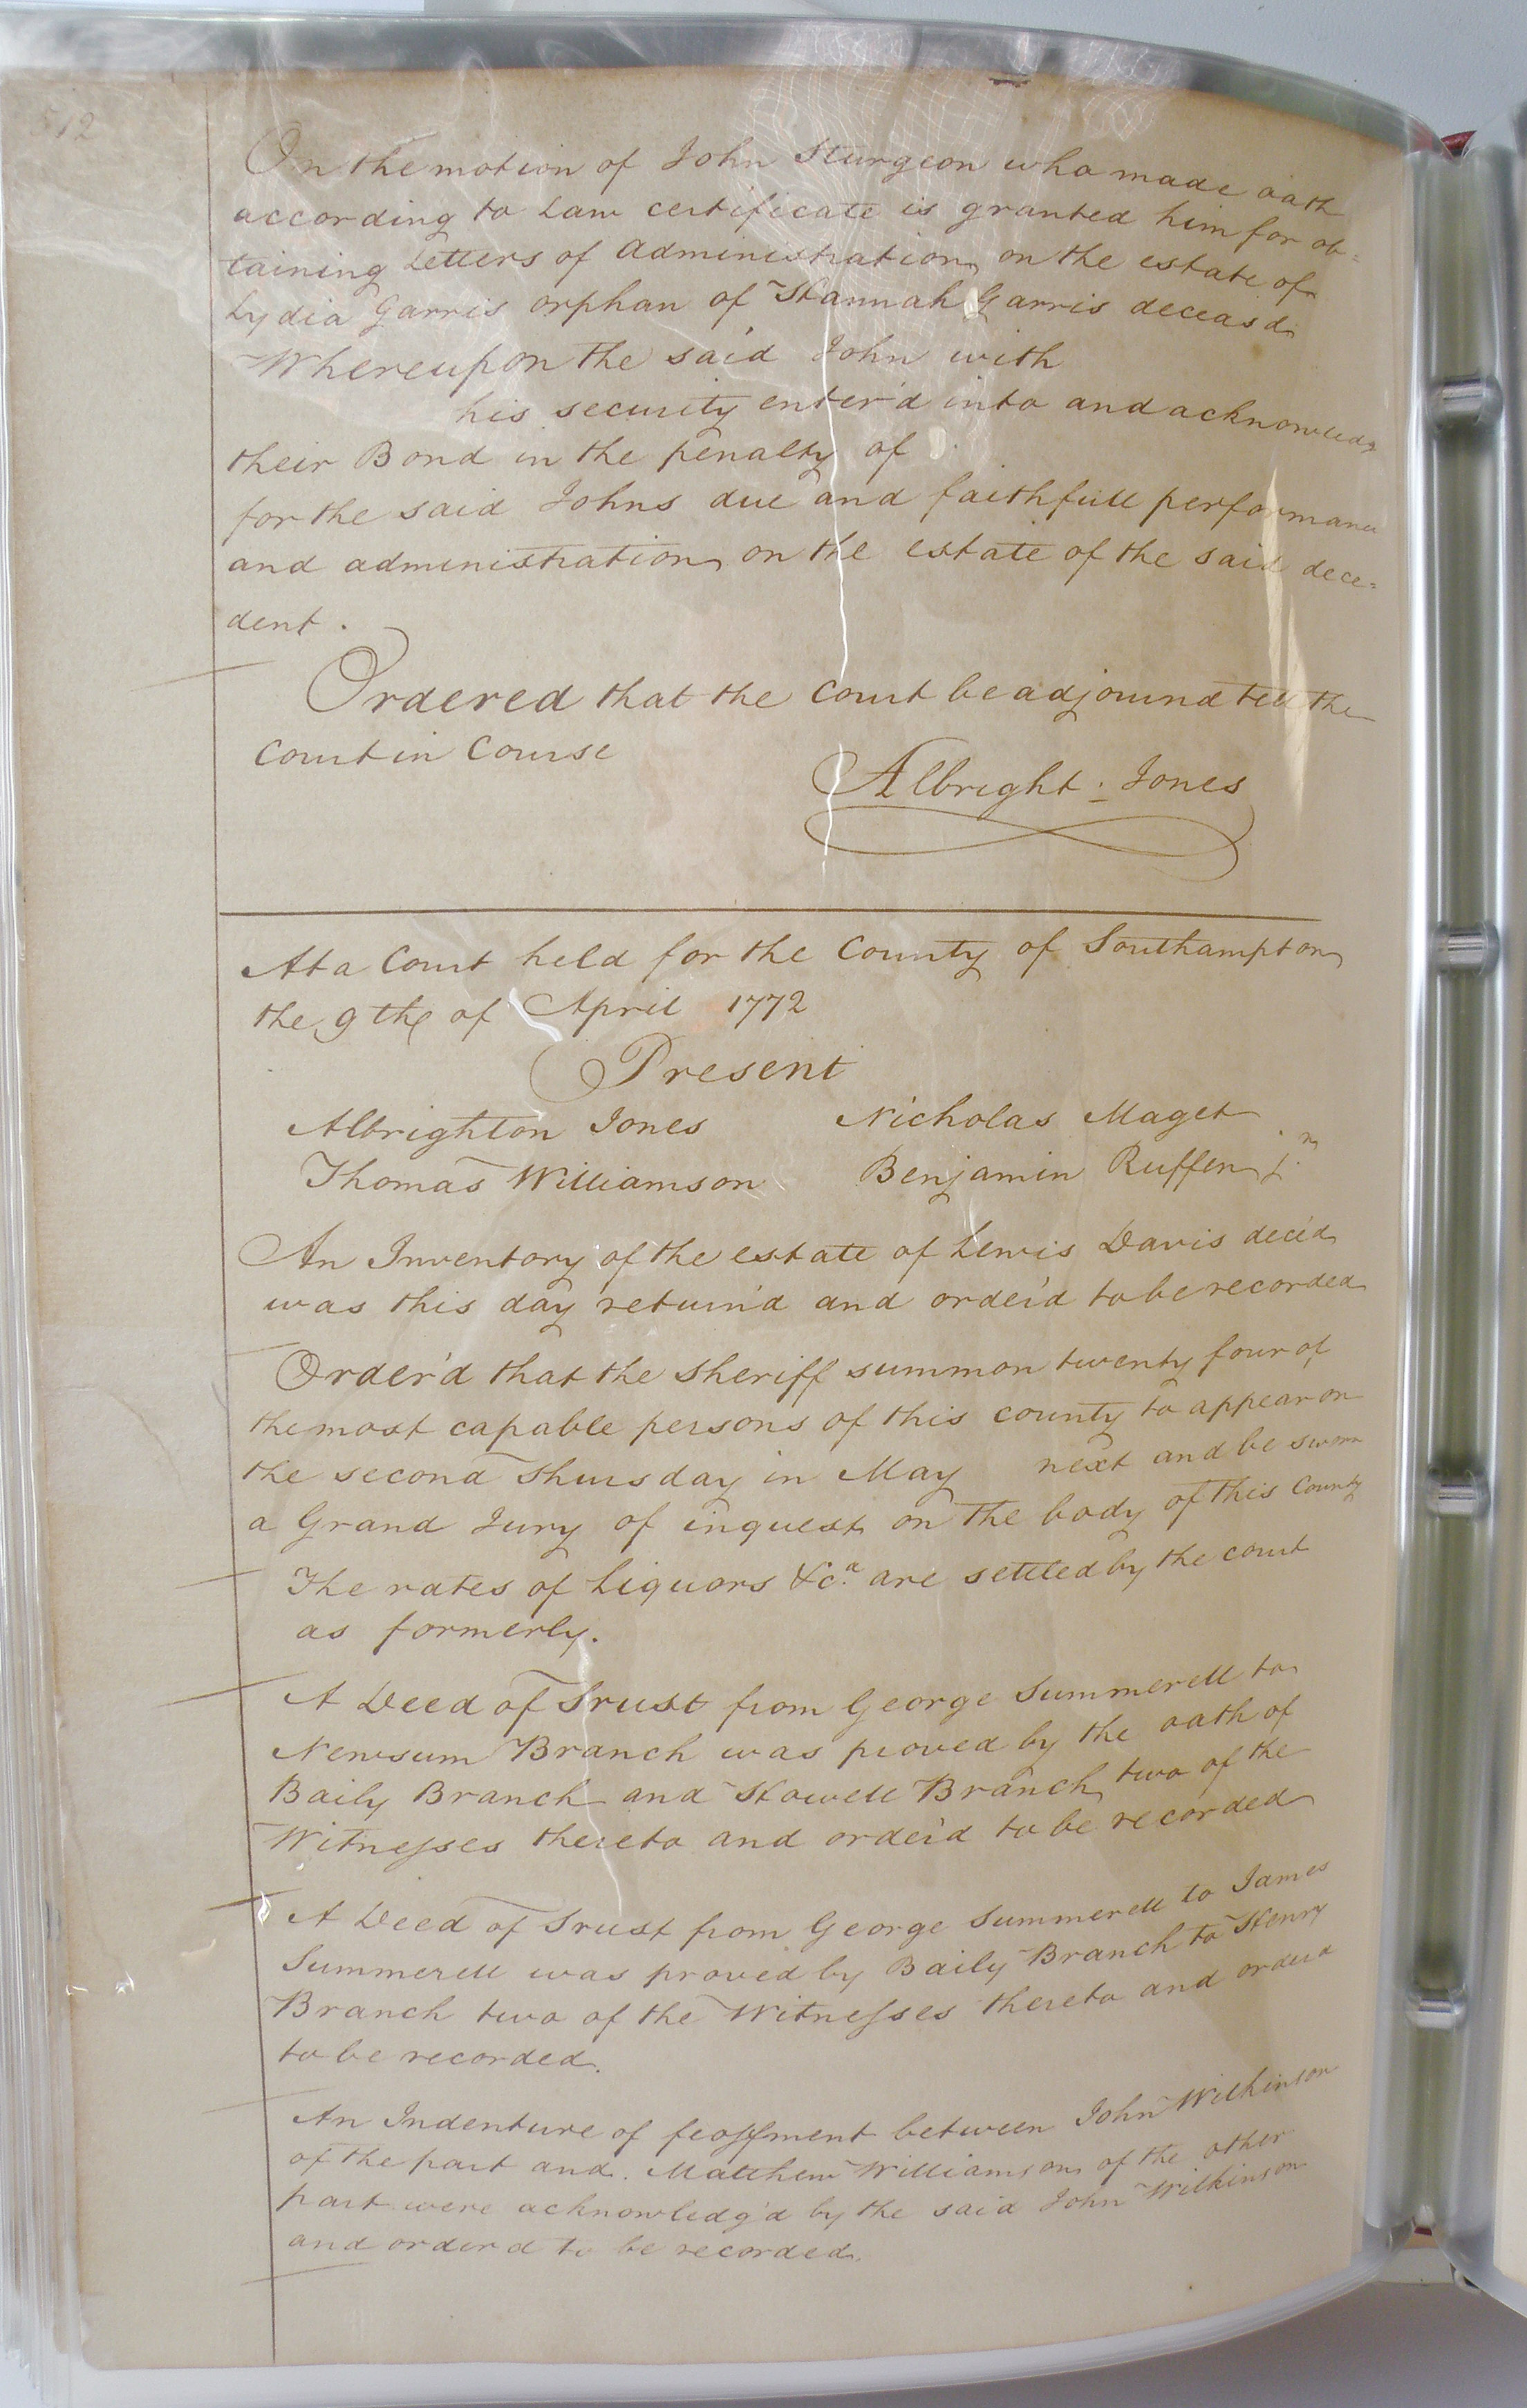 512
On the motion of John Sturgeon who made oath
according to Law certificate is granted him for ob=
taining Letters of Administration on the estate of
Lydia Garris orphan of Hannah Garris deceasd
Whereupon the said John with
his security enter'd into and acknowledg
their Bond in the penalty of
for the said Johns due and faithfull performance
and administration on the estate of the said dece=
dent.
Ordered that the Court be adjournd till the
Court in Course
Albright : Jones
At a Court held for the County of Southampton
the 9th of April 1772
Present
Albrighton Jones Nicholas Maget
Thomas Williamson Benjamin Ruffen jr.
An Inventory of the estate of Lewis Davis dec'd
was this day return'd and order'd to be recorded
Order'd that the Sheriff summon twenty four of
the most capable persons of this county to appear on
the second Thursday in May next and be sworn
a Grand Jury of inquest on the body of this County
The rates of Liquors &c.a are settled by the court
as formerly.
A Deed of Trust from George Summerell to
Newsum Branch was proved by the oath of
Baily Branch and Howell Branch two of the
Witnesses thereto and order'd to be recorded
A Deed of Trust from George Summerell to James
Summerell was proved by Baily Branch to Henry
Branch two of the Witnesses thereto and orderd
to be recorded.
An Indenture of feoffment between John Wilkinson
of the part and. Matthew Williamson of the other
part were acknowledg'd by the said John Wilkinson
and orderd to be recorded.